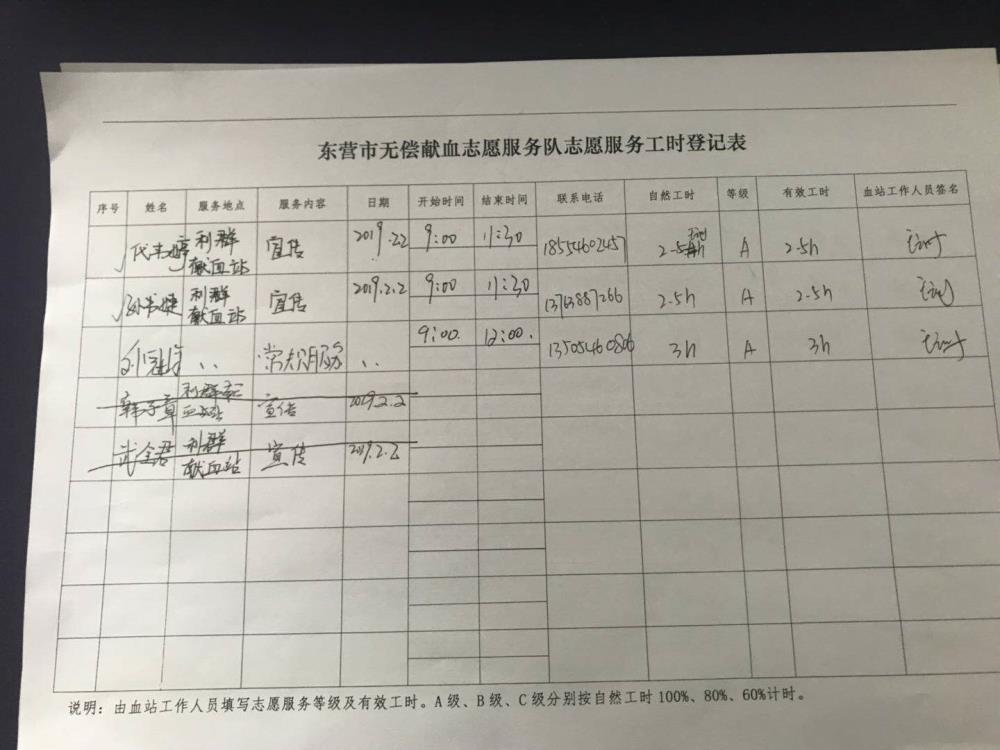 东营市无偿献血志愿服务队志愿服务工时登记表
序号 姓名 服务地点 服务内容 日期 开始时间 结束时间 联系电话 自然工时 等级 有效工时 血站工作人员签名
利群 献血站 宣传 2019.2.2 9:00 11:30 18554602457 2.5h A 2.5h
利群 献血站 宣传 2019.2.2 9:00 11:30 13763887266 2.5h A 2.5h
常规服务 9:00. 12:00. 13505460806 3h A 3h
韩子章 利群献血站 宣传 2019.2.2
武全君 利群 献血站 宣传 2019.2.2
说明：由血站工作人员填写志愿服务等级及有效工时。A级、B级、C级分别按自然工时100%、80%、60%计时。